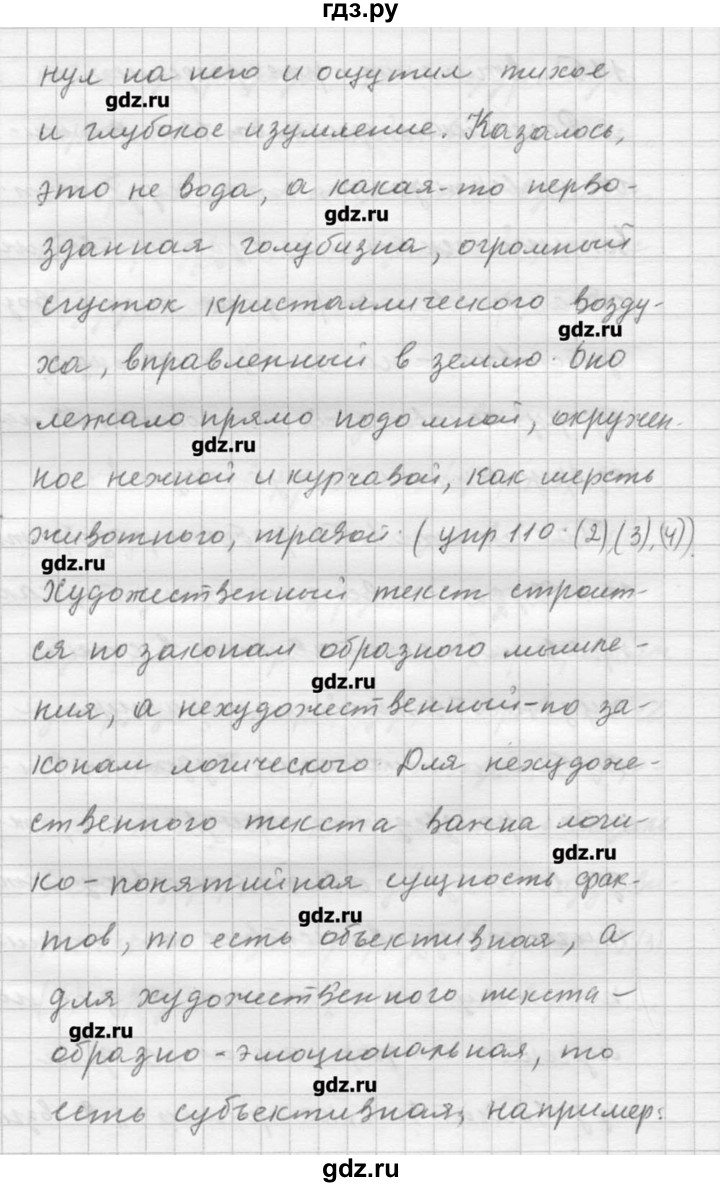 гдз.ру
нул на него и ощутил тихое
gdz.ru
и глубокое изумление. Казалось,
это не вода, а какая-то перво-
gdz.ru
зданная голубизна, огромный
сгусток кристаллического возду-
gdz.ru
ха, вправленный в землю. Оно
лежало прямо подо мной, окружен-
gdz.ru
ное нежной и курчавой, как шерсть
животного, травой. (упр 110. (2),(3),(4)).
gdz.ru
Художественный текст строит-
ся по законам образного мышле-
gdz.ru
ния, а нехудожественный-по за-
конам логического. Для нехудоже-
ственного текста важна логи-
gdz.ru
ко-понятийная сущность фак-
gdz.ru
тов, то есть объективная, а
для художественного текста-
gdz.ru
образно-эмоциональная, то
gdz.ru
есть субъективная, например:
gdz.ru